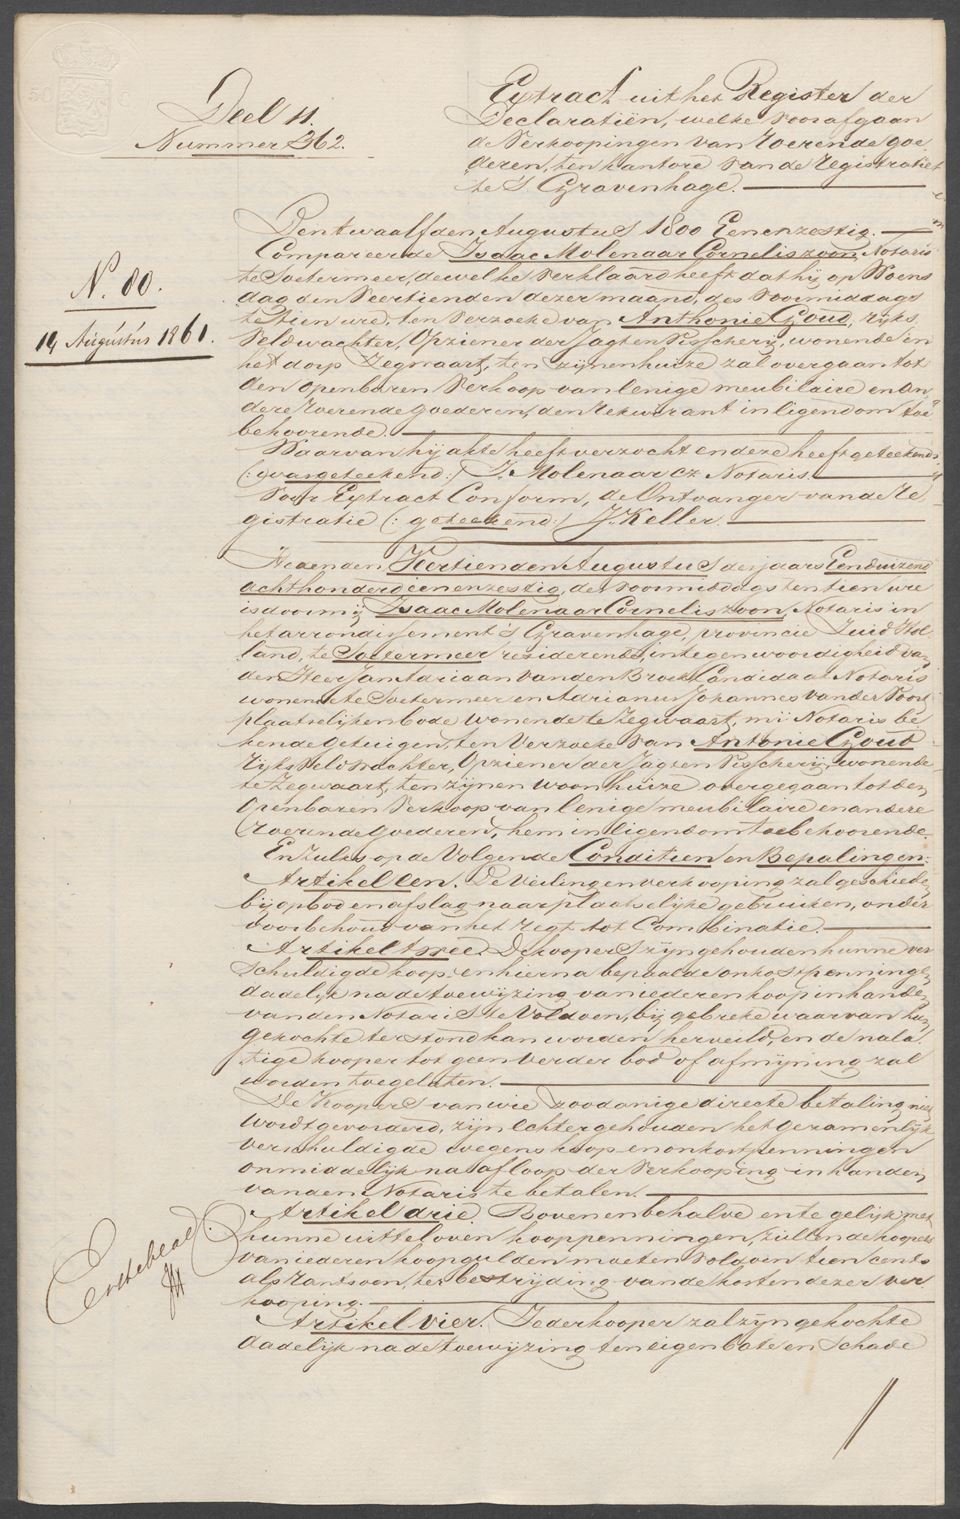 Deel 11.
Nummer 362.
Extract uit het Register der
Declaratiën, welke voorafgaan
de Verkoopingen van roerende goe
deren, ten kantore van de registratie
te 's Gravenhage.
N. 80.
14 Augustus 1861.
Den twaalfden Augustus 1800 Eenenzestig.
Compareerde Isaac Molenaar Corneliszoon, Notaris
te Soetermeer, dewelke verklaard heeft dat hij op Woens
dag den veertienden dezer maand, des voormiddags
te tien ure, ten verzoeke van Anthonie Goud, rijks
veldwachter, Opziener der Jagt en Visscherij, wonende in
het dorp Zegwaart, ten zijnen huize zal overgaan tot
den openbaren verkoop van eenige meubilaire en an
dere roerende goederen, den rekwirant in eigendom toe
behoorende.
Waarvan hij akte heeft verzocht en deze heeft geteekend
(: was geteekend:) I. Molenaar Cz Notaris.
Voor Extract Conform, de Ontvanger van de Re
gistratie (: geteekend:) J. Keller.
Heden den Veertienden Augustus des jaars Eenduizend
achthonderd eenenzestig, des voormiddags ten tien ure
is door mij Isaac Molenaar Corneliszoon, Notaris in
het arrondissement 's Gravenhage, provincie Zuid Hol
land, te Soetermeer resideerende, in tegenwoordigheid van
den Heer Jan Adriaan van den Broek Candidaat Notaris
wonende te Soetermeer en Adrianus Johannes van der Poort
plaatselijken bode wonende te Zegwaart, mij Notaris be
kende getuigen, ten verzoeke van Antonie Goud
Rijks veldwachter, Opziener der Jagt en Visscherij, wonende
te Zegwaart, ten zijnen woonhuize overgegaan tot den
Openbaren Verkoop van eenige meubilaire en andere
roerende goederen, hem in eigendom toebehoorende.
En zulks op de volgende Conditien en Bepalingen:
Artikel een. De Veiling en verkooping zal geschieden
bij opbod en afslag naar plaatselijke gebruiken, onder
voorbehoud van het regt tot Combinatie.
Artikel twee. De koopers zijn gehouden hunne ver
schuldigde koop- en hierna bepaalde onkostpenningen
dadelijk na de toewijzing van iederen koop in handen
van den Notaris te voldoen, bij gebreke waarvan hun
gekochte terstond kan worden herveild, en de nala
tige kooper tot geen verder bod of afmijning zal
worden toegelaten.
De Koopers van wie zoodanige directe betaling niet
wordt gevorderd, zijn echter gehouden het gezamenlijk
verschuldigde wegens koop en onkostpenningen
onmiddelijk na afloop der verkooping in handen
van den Notaris te betalen.
Artikel drie. Boven en behalve en te gelijk met
hunne uitteloven kooppenningen, zullen de koopers
van iederen koopgulden moeten voldoen tien cents
als rantsoen, ter bestrijding van de kosten dezer ver
kooping.
Artikel vier. Ieder kooper zal zijn gekochte
dadelijk na de toewijzing ten eigen bate en schade